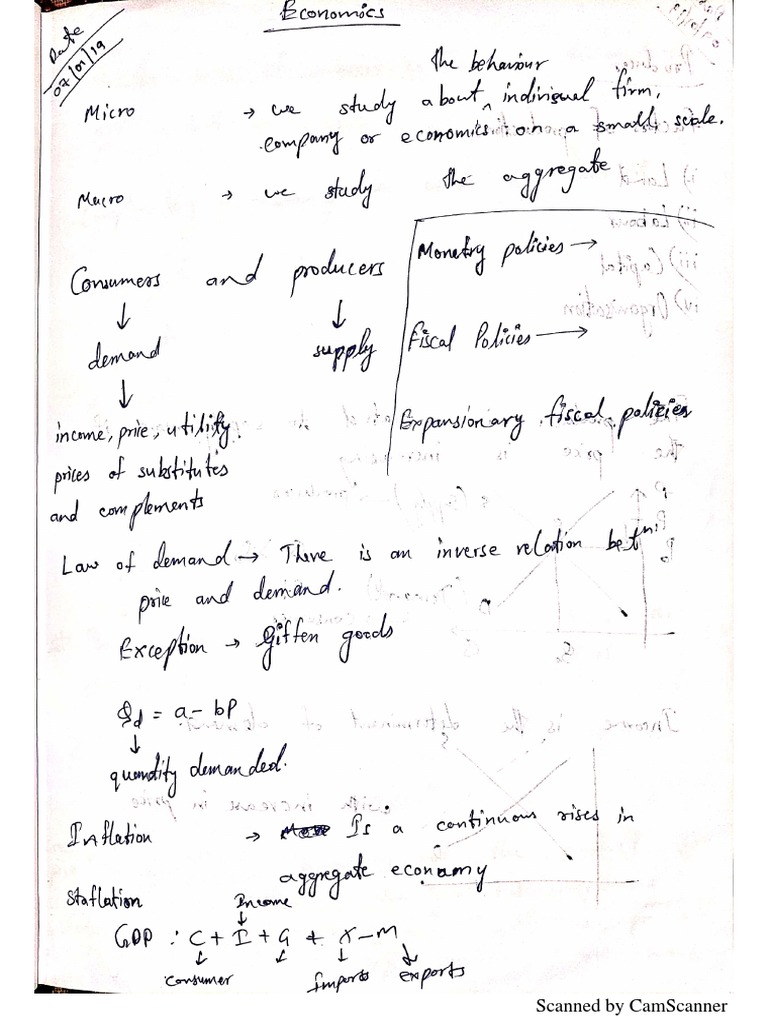 Economics
Date
07/01/19
the behaviour
Micro → we study about ^ individual firm,
company or economics on a small scale.
Macro → we study the aggregate
Monetry policies →
Consumers and producers
↓ ↓
demand supply
Fiscal Policies →
↓
income, price, utility,
Expansionary fiscal policies
prices of substitutes
and complements
Law of demand → There is an inverse relation betⁿ
price and demand.
Exception → Giffen goods
Qd = a - bP
↓
quantity demanded.
Inflation → Is a continuous rises in
aggregate economy
Staflation
Income
↓
GDP : C + I + G + X - M
↓ ↓ ↓ ↓
Consumer Imports exports
Scanned by CamScanner